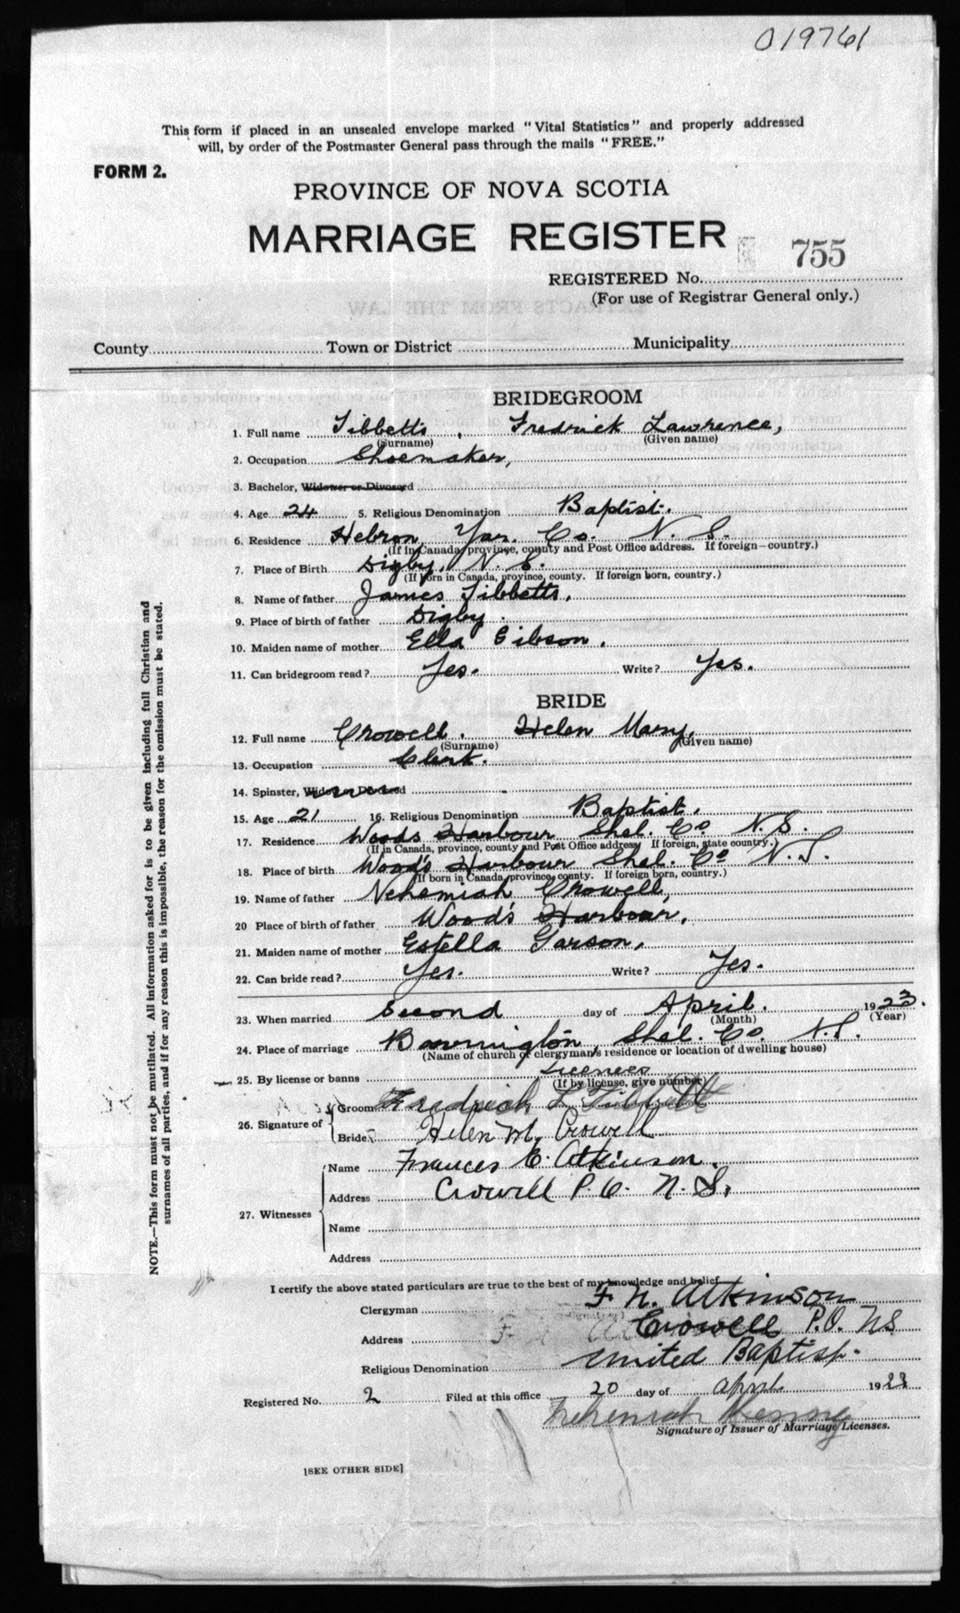 019761
This form if placed in an unsealed envelope marked "Vital Statistics" and properly addressed
will, by order of the Postmaster General pass through the mails "FREE."
FORM 2.
PROVINCE OF NOVA SCOTIA
MARRIAGE REGISTER
755
REGISTERED No.
(For use of Registrar General only.)
County Town or District Municipality
BRIDEGROOM
1. Full name Tibbetts, Fredrick Lawrence,
(Surname) (Given name)
2. Occupation Shoemaker,
3. Bachelor, Widower or Divorced
4. Age 24 5. Religious Denomination Baptist.
6. Residence Hebron, Yar. Co. N. S.
(If in Canada, province, county and Post Office address. If foreign—country.)
7. Place of Birth Digby, N. S.
(If born in Canada, province, county. If foreign born, country.)
8. Name of father James Tibbetts,
9. Place of birth of father Digby.
10. Maiden name of mother Ella Gibson.
11. Can bridegroom read? Yes. Write? Yes.
BRIDE
12. Full name Crowell. Helen Mary,
(Surname) (Given name)
13. Occupation Clerk.
14. Spinster, Widow or Divorced
15. Age 21 16. Religious Denomination Baptist.
17. Residence Woods Harbour Shel. Co N. S.
(If in Canada, province, county and Post Office address. If foreign, state country.)
18. Place of birth Wood's Harbour Shel. Co N. S.
(If born in Canada, province, county. If foreign born, country.)
19. Name of father Nehemiah Crowell,
20 Place of birth of father Wood's Harbour,
21. Maiden name of mother Estella Garson,
22. Can bride read? Yes. Write? Yes.
23. When married Second day of April. 1923.
(Month) (Year)
24. Place of marriage Barrington, Shel. Co. N. S.
(Name of church or clergyman's residence or location of dwelling house)
25. By license or banns Licences
(If by license, give number)
26. Signature of
Groom Fredrick L Tibbetts
Bride Helen M. Crowell
27. Witnesses
Name Frances E. Atkinson.
Address Crowell P.O. N. S.
Name
Address
I certify the above stated particulars are true to the best of my knowledge and belief
Clergyman F. N. Atkinson
Address Crowell P.O. NS
Religious Denomination United Baptist.
Registered No. 2 Filed at this office 20 day of April 1923
Nehemiah Kenny
Signature of Issuer of Marriage Licenses.
[SEE OTHER SIDE]
NOTE.—This form must not be mutilated. All information asked for is to be given including full Christian and
surnames of all parties, and if for any reason this is impossible, the reason for the omission must be stated.